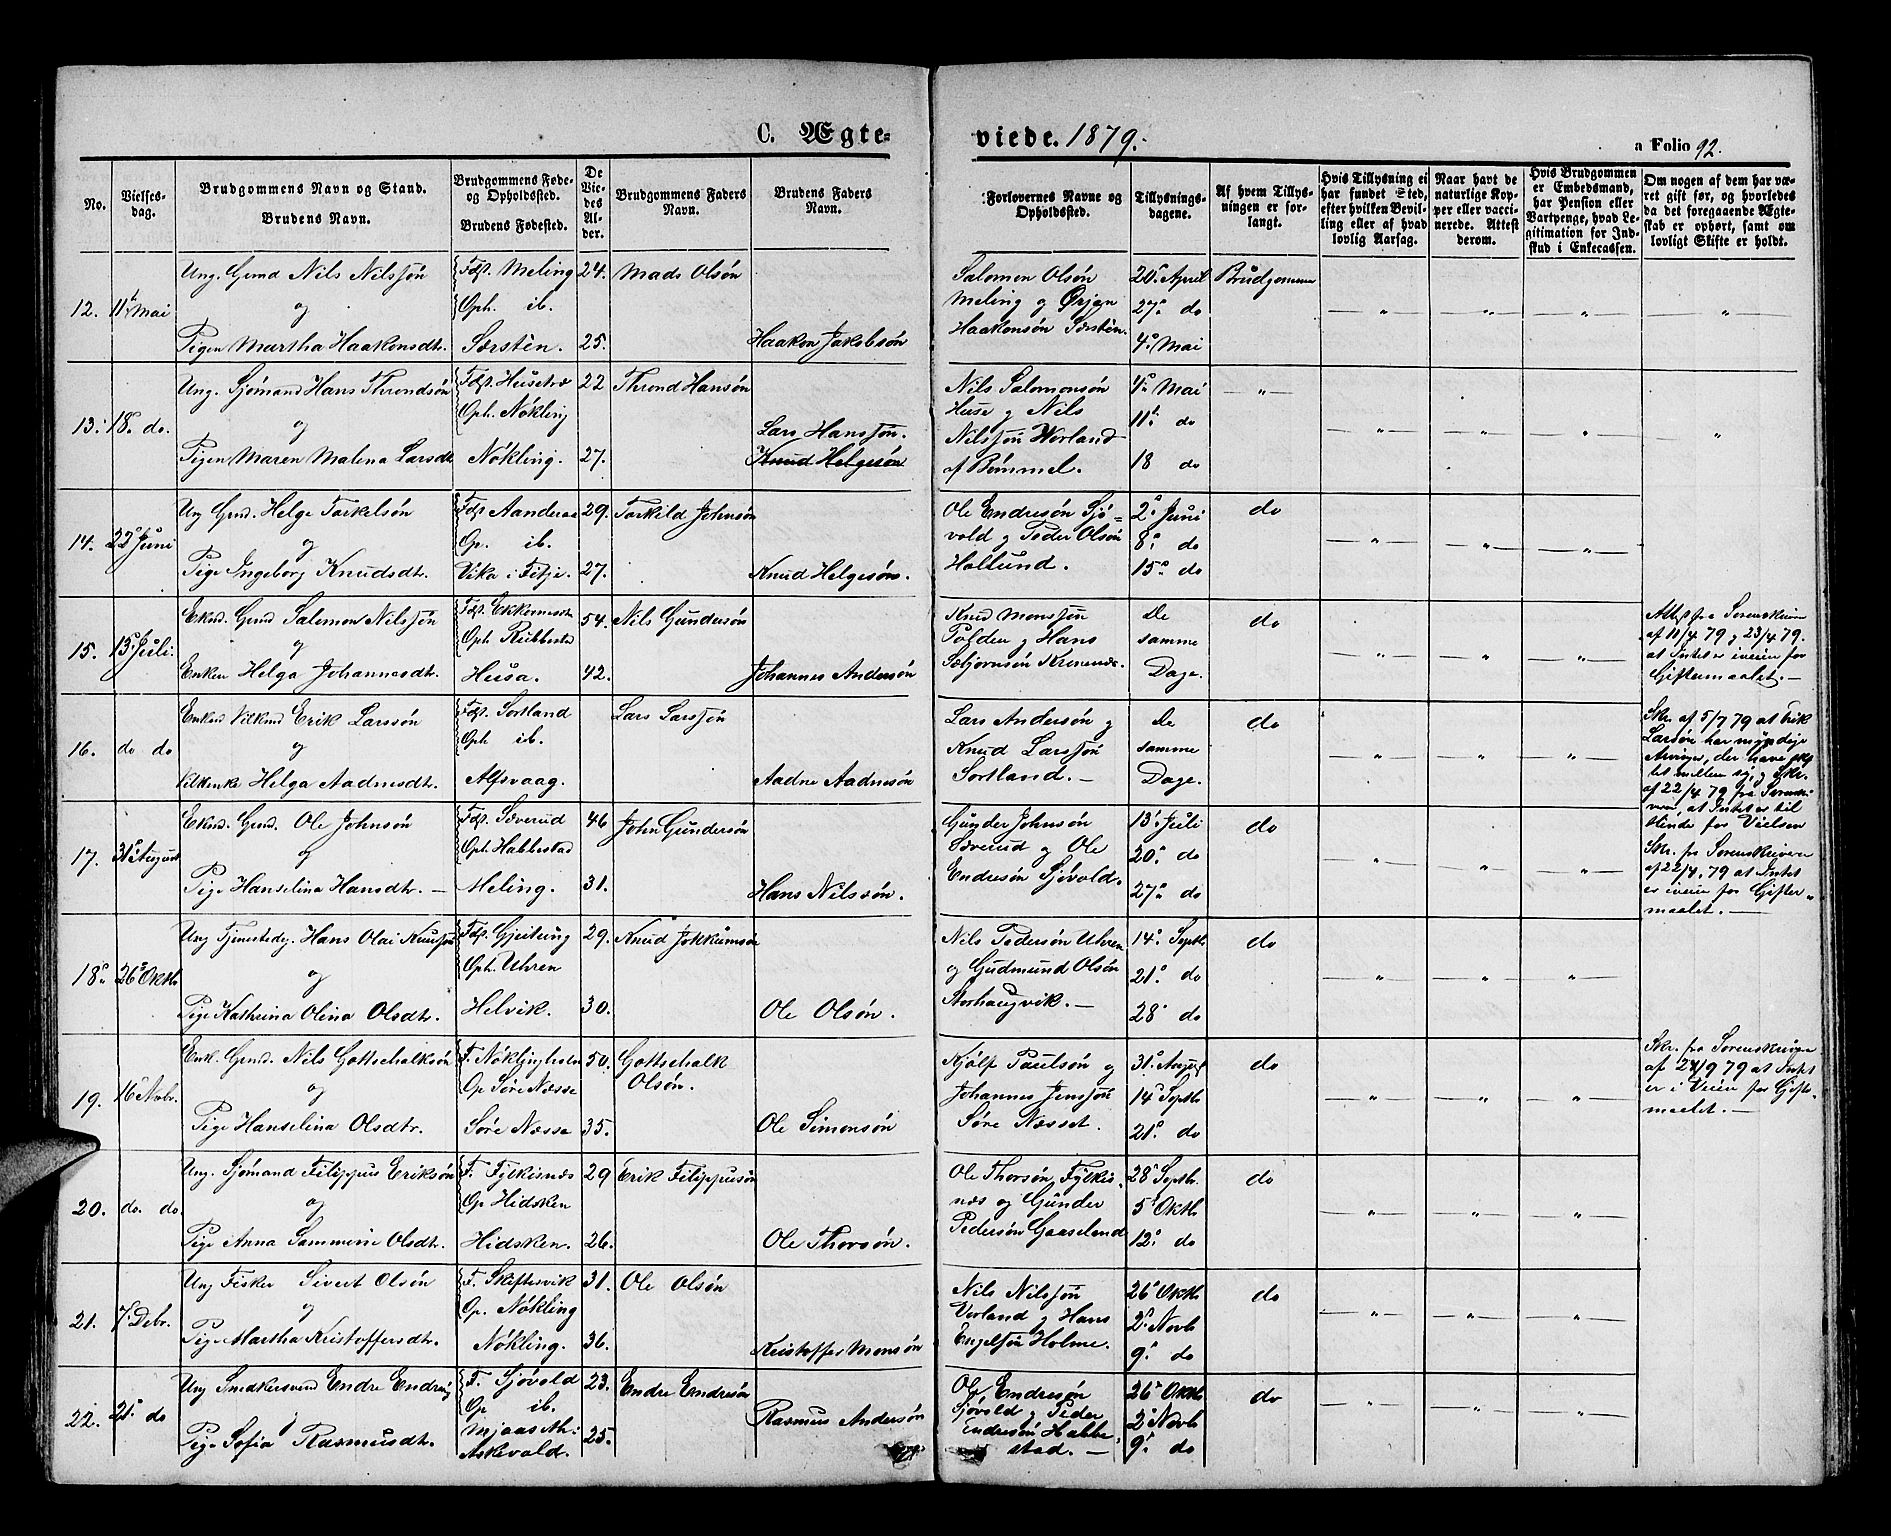 C. Ægte-
viede. 1879.
a Folio 92.
No.
Vielses-
dag.
Brudgommens Navn og Stand.
Brudens Navn.
Brudgommens Føde-
og Opholdsted.
Brudens Fødested.
De
Vie-
des
Al-
der.
Brudgommens Faders
Navn.
Brudens Faders
Navn.
Forlovernes Navne og
Opholdsted.
Tillysnings-
dagene.
Af hvem Tillys-
ningen er for-
langt.
Hvis Tillysning ei
har fundet Sted,
efter hvilken Bevil-
ling eller af hvad
lovlig Aarsag.
Naar havt de
naturlige Kop-
per eller vacci-
nerede. Attest
derom.
Hvis Brudgommen
er Embedsmand,
har Pension eller
Vartpenge, hvad Le-
gitimation for Ind-
skud i Enkecassen.
Om nogen af dem har væ-
ret gift før, og hvorledes
da det foregaaende Ægte-
skab er ophørt, samt om
lovligt Skifte er holdt.
12. 11te Mai
Ung. Gmd Nils Nilssøn
og
Pigen Martha Haakonsdtr.
Fdst. Meling 24.
Oph. ib.
Sørsten. 25.
Mads Olsøn
Haakon Jakobsøn
Salomon Olsøn
Meling g Ørjan
Haakonsøn Sørstén.
20. April
27. do
4. Mai
Brudgommen
13. 18. do.
Ung. Sjømand Hans Throndsøn
og
Pigen Maren Malena Larsdt
Fdst. Husetræ 22
Oph. Nøkling
Nøkling. 27.
Thrond Hansøn
Lars Hanssøn.
Knud Helgesøn
Nils Salomonsøn
Huse g Nils
Nilssøn Vorland
af Bømmel.
4. Mai
11. do
18 do
14. 22 Juni
Ung Gmd. Helge Torkelsøn
og
Pige Ingeborg Knudsdtr.
Fdst. Aanderaa 29.
Op. ib.
Vika i Fitje. 27.
Torkild Johnsøn
Knud Helgesøn.
Ole Endresøn Sjø-
vold g Peder Olsøn
Hollund.
2. Juni
8. do
15. do
do
15. 13. Juli.
Ekmd. Gmd Salomon Nilssøn
og
Enken Helga Johannesdtr.
Oph. Rubbestad
Husa.
54.
42.
Nils Gundersøn
Johannes Andersøn
Knud Monssøn
g Hans
De
samme
Dage.
do
Attest fra Sorenskriver
af 11/4 79 g 23/4 79.
at Intet er iveien for
Giftermaalet.
16. do do
Enkmd Vilkmd Erik Larssøn
og
Vilkenke Helga Aadnesdtr.
Fdst. Sortland
Oph ib.
Alfsvaag.
Lars Larssøn
Aadne Aadnesøn
Lars Andersøn g
Knud Larssøn
Sortland.
De
samme
Dage.
do
Skr. af 5/7 79 at Erik
Larsøn har myndige
Arvinger, der have skif-
tet mellem sig, g Skr.
af 22/4 79 fra Sorenskri-
ver, at Intet er til
Hinder for Vielsen
17. 31. August
Ekmd. Gmd. Ole Johnsøn
og
Pige Hanselina Hansdtr.
Fdst. Sæverud 46
Oph. Habbestad
Meling. 31.
John Gundersøn
Hans Nilssøn.
Gunder Johnsøn
Sæverud og Ole
Endresøn Sjøvold.
13. Juli
20. do
27. do
do
Skr. fra Sorenskriver
af 22/4. 79 at Intet
er iveien for Gifter-
maalet.
18. 26. Oktb
Ung Tjenestedrg. Hans Olai Knudsøn
og
Pige Kathrina Olina Olsdtr.
Fdst. Gjeitung 29.
Oph. Uhren
Helvik. 30.
Knud Jokkumsøn
Ole Olsøn.
Nils Pedersøn Uhren
og Gudmund Olsøn
Storhaugvik.
14. Septb.
21. do
28 do
do
19. 16 Novbr.
Enkl. Gmd. Nils Gottschalksøn
og
Pige Hanselina Olsdtr.
F. Nøklingholm 50.
Op Søre Næsse
Søre Næsse 35.
Gottschalk
Olsøn.
Ole Simonsøn
Kjølp Paulsøn og
Johannes Jenssøn
Søre Næsset.
31. August
14. Septb
21. do
do
Skr. fra Sorenskriver
af 24/9 79 at Intet
er i Veien for Gifte-
maalet.
20. do. do.
Ung. Sjømand Filippus Eriksøn
og
Pige Anna Sammine Olsdtr.
F. Fylkisnæs 29
Op Hidsken
Hidsken. 26.
Erik Filippusøn
Ole Thorsøn.
Ole Thorsøn, Fylkis-
næs og Gunder
Pedersøn Gaaseland
28. Septb.
5. Oktb
12. do
do
21. 7. Debr.
Ung Fisker Sivert Olsøn
og
Pige Martha Kristoffersdtr.
F. Skiftesvik 31.
Op. Nøkling
Nøkling. 36.
Ole Olsøn
Kristoffer Monsøn
Nils Nilssøn
Vorland g Hans
Engelssøn Holme.
26. Oktb
2. Novb
9. do
do
22. 21. do
Ung Snedkersvend Endre Endresøn
g
Pige Sofia Rasmusdtr.
F. Sjøvold 23.
Op ib.
Mjaasath:
Askevold. 25.
Endre Endresøn
Rasmus Andersøn
Ole Endresøn
Sjøvold g Peder
Endresøn Habbe-
stad.
26. Oktb
2. Novb
9. do
do